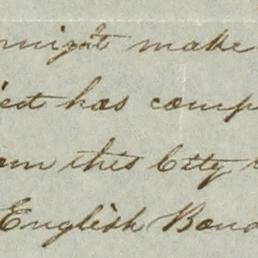 might make
est has comp
om this City
English Bond